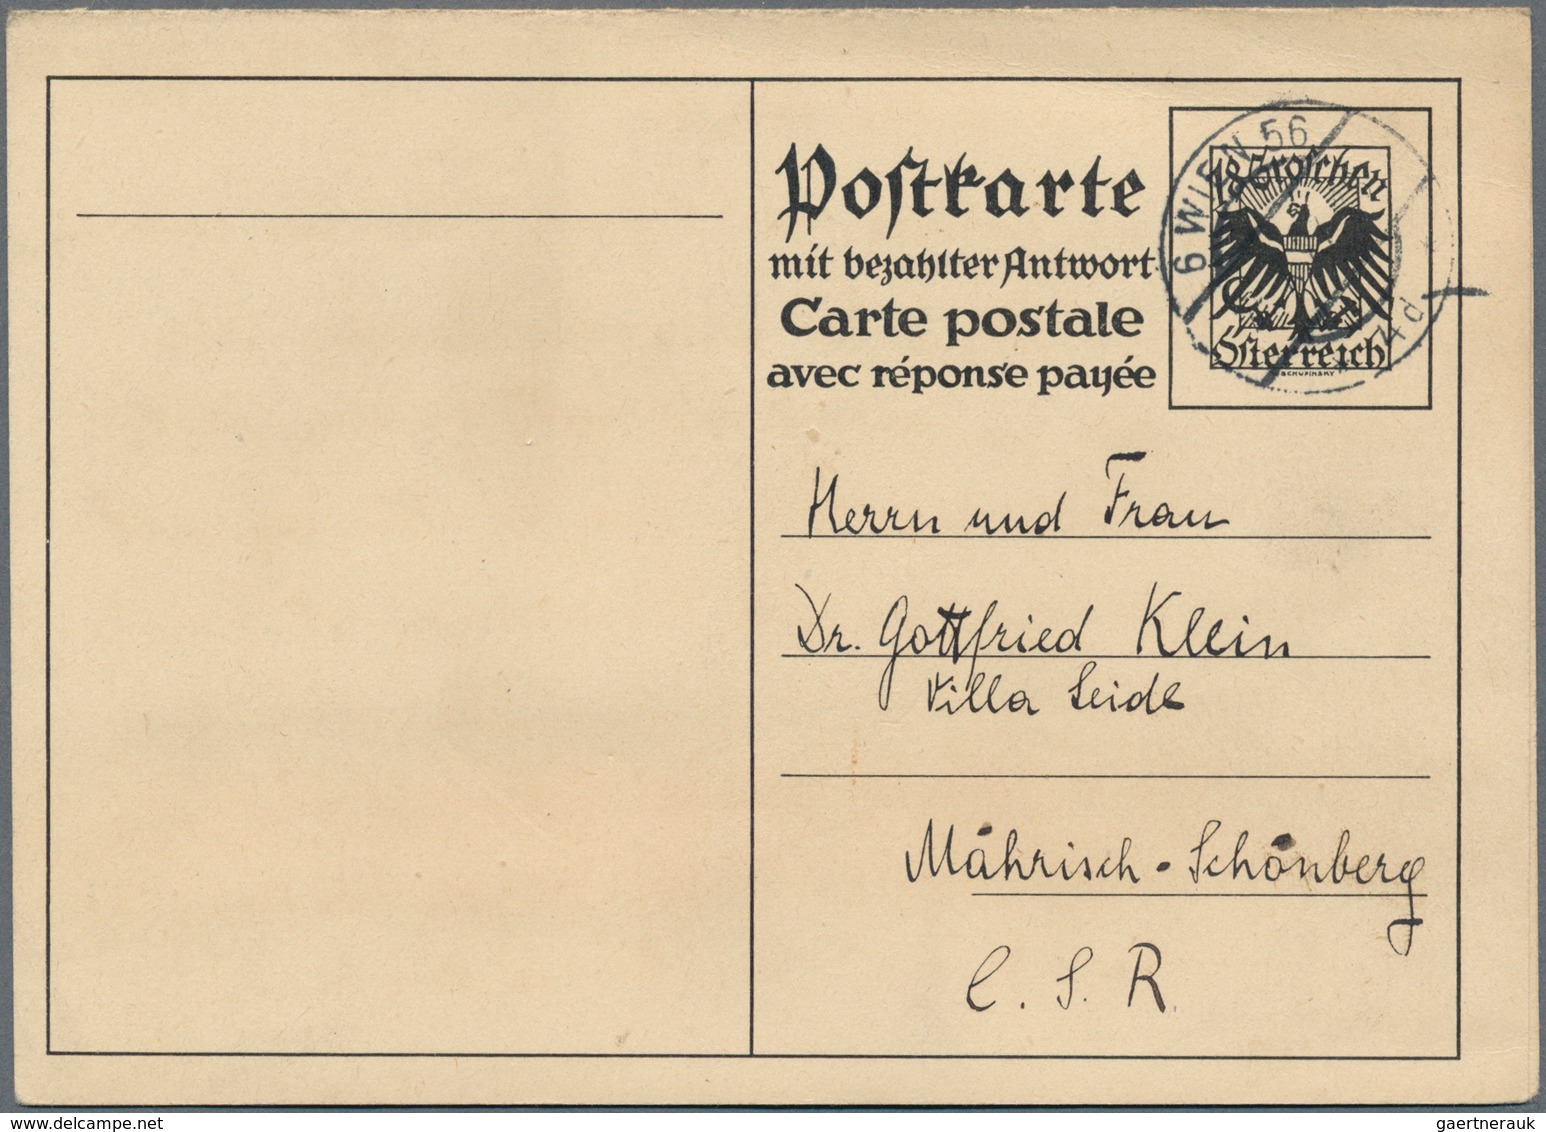 Postkarte
mit bezahlter Antwort
Carte postale
avec réponse payée
6 WIEN 56
18 Groschen
Österreich
SCHUPINSKY
Herrn und Frau
Dr. Gottfried Klein
Villa Seidl
Mährisch-Schönberg
C. S. R.
delcampe.net
gaertnerauk